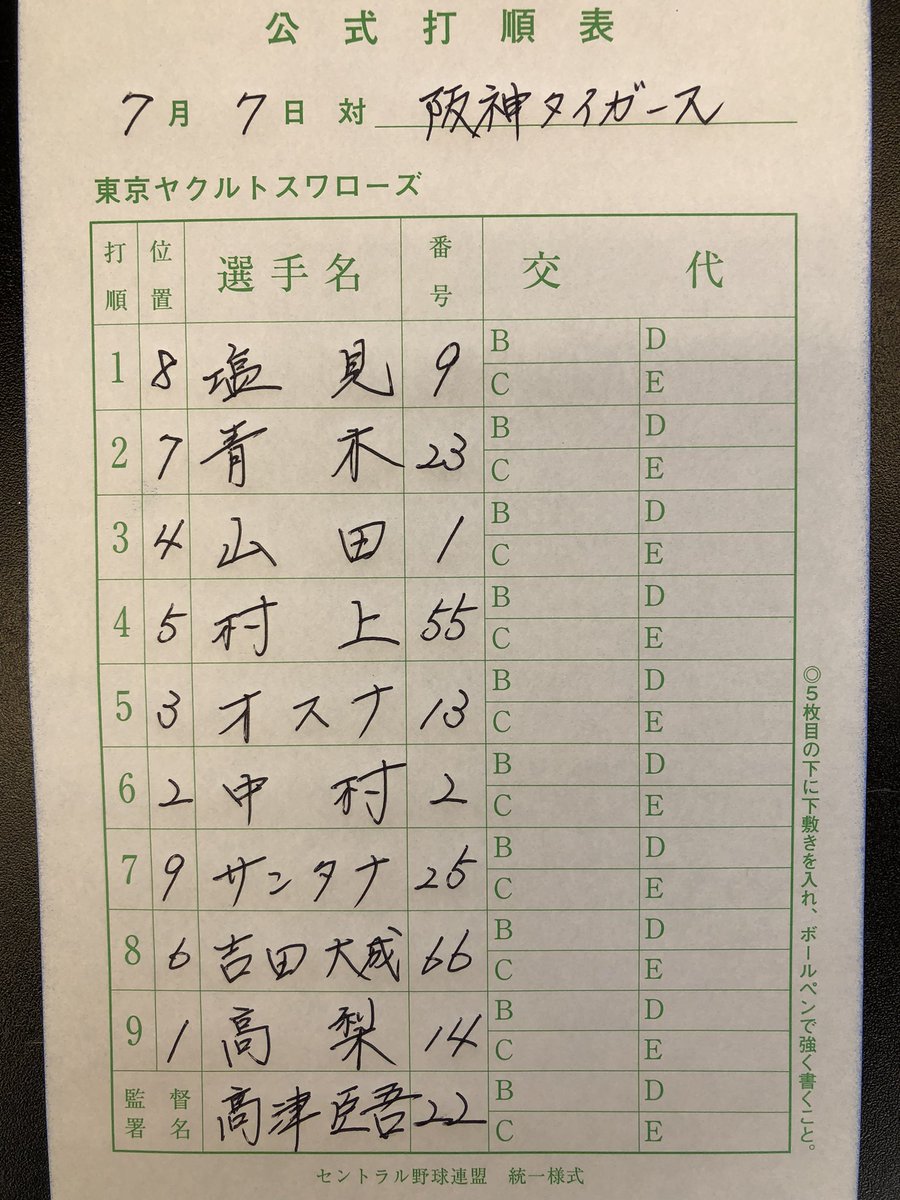 公式打順表
7月7日対 阪神タイガース
東京ヤクルトスワローズ
打順 位置 選手名 番号 交代
1 8 塩見 9 B D
C E
2 7 青木 23 B D
C E
3 4 山田 1 B D
C E
4 5 村上 55 B D
C E
5 3 オスナ 13 B D
C E
6 2 中村 2 B D
C E
7 9 サンタナ 25 B D
C E
8 6 吉田大成 66 B D
C E
9 1 高梨 14 B D
C E
監督署名 高津臣吾 22 B D
C E
◎5枚目の下に下敷きを入れ、ボールペンで強く書くこと。
セントラル野球連盟 統一様式